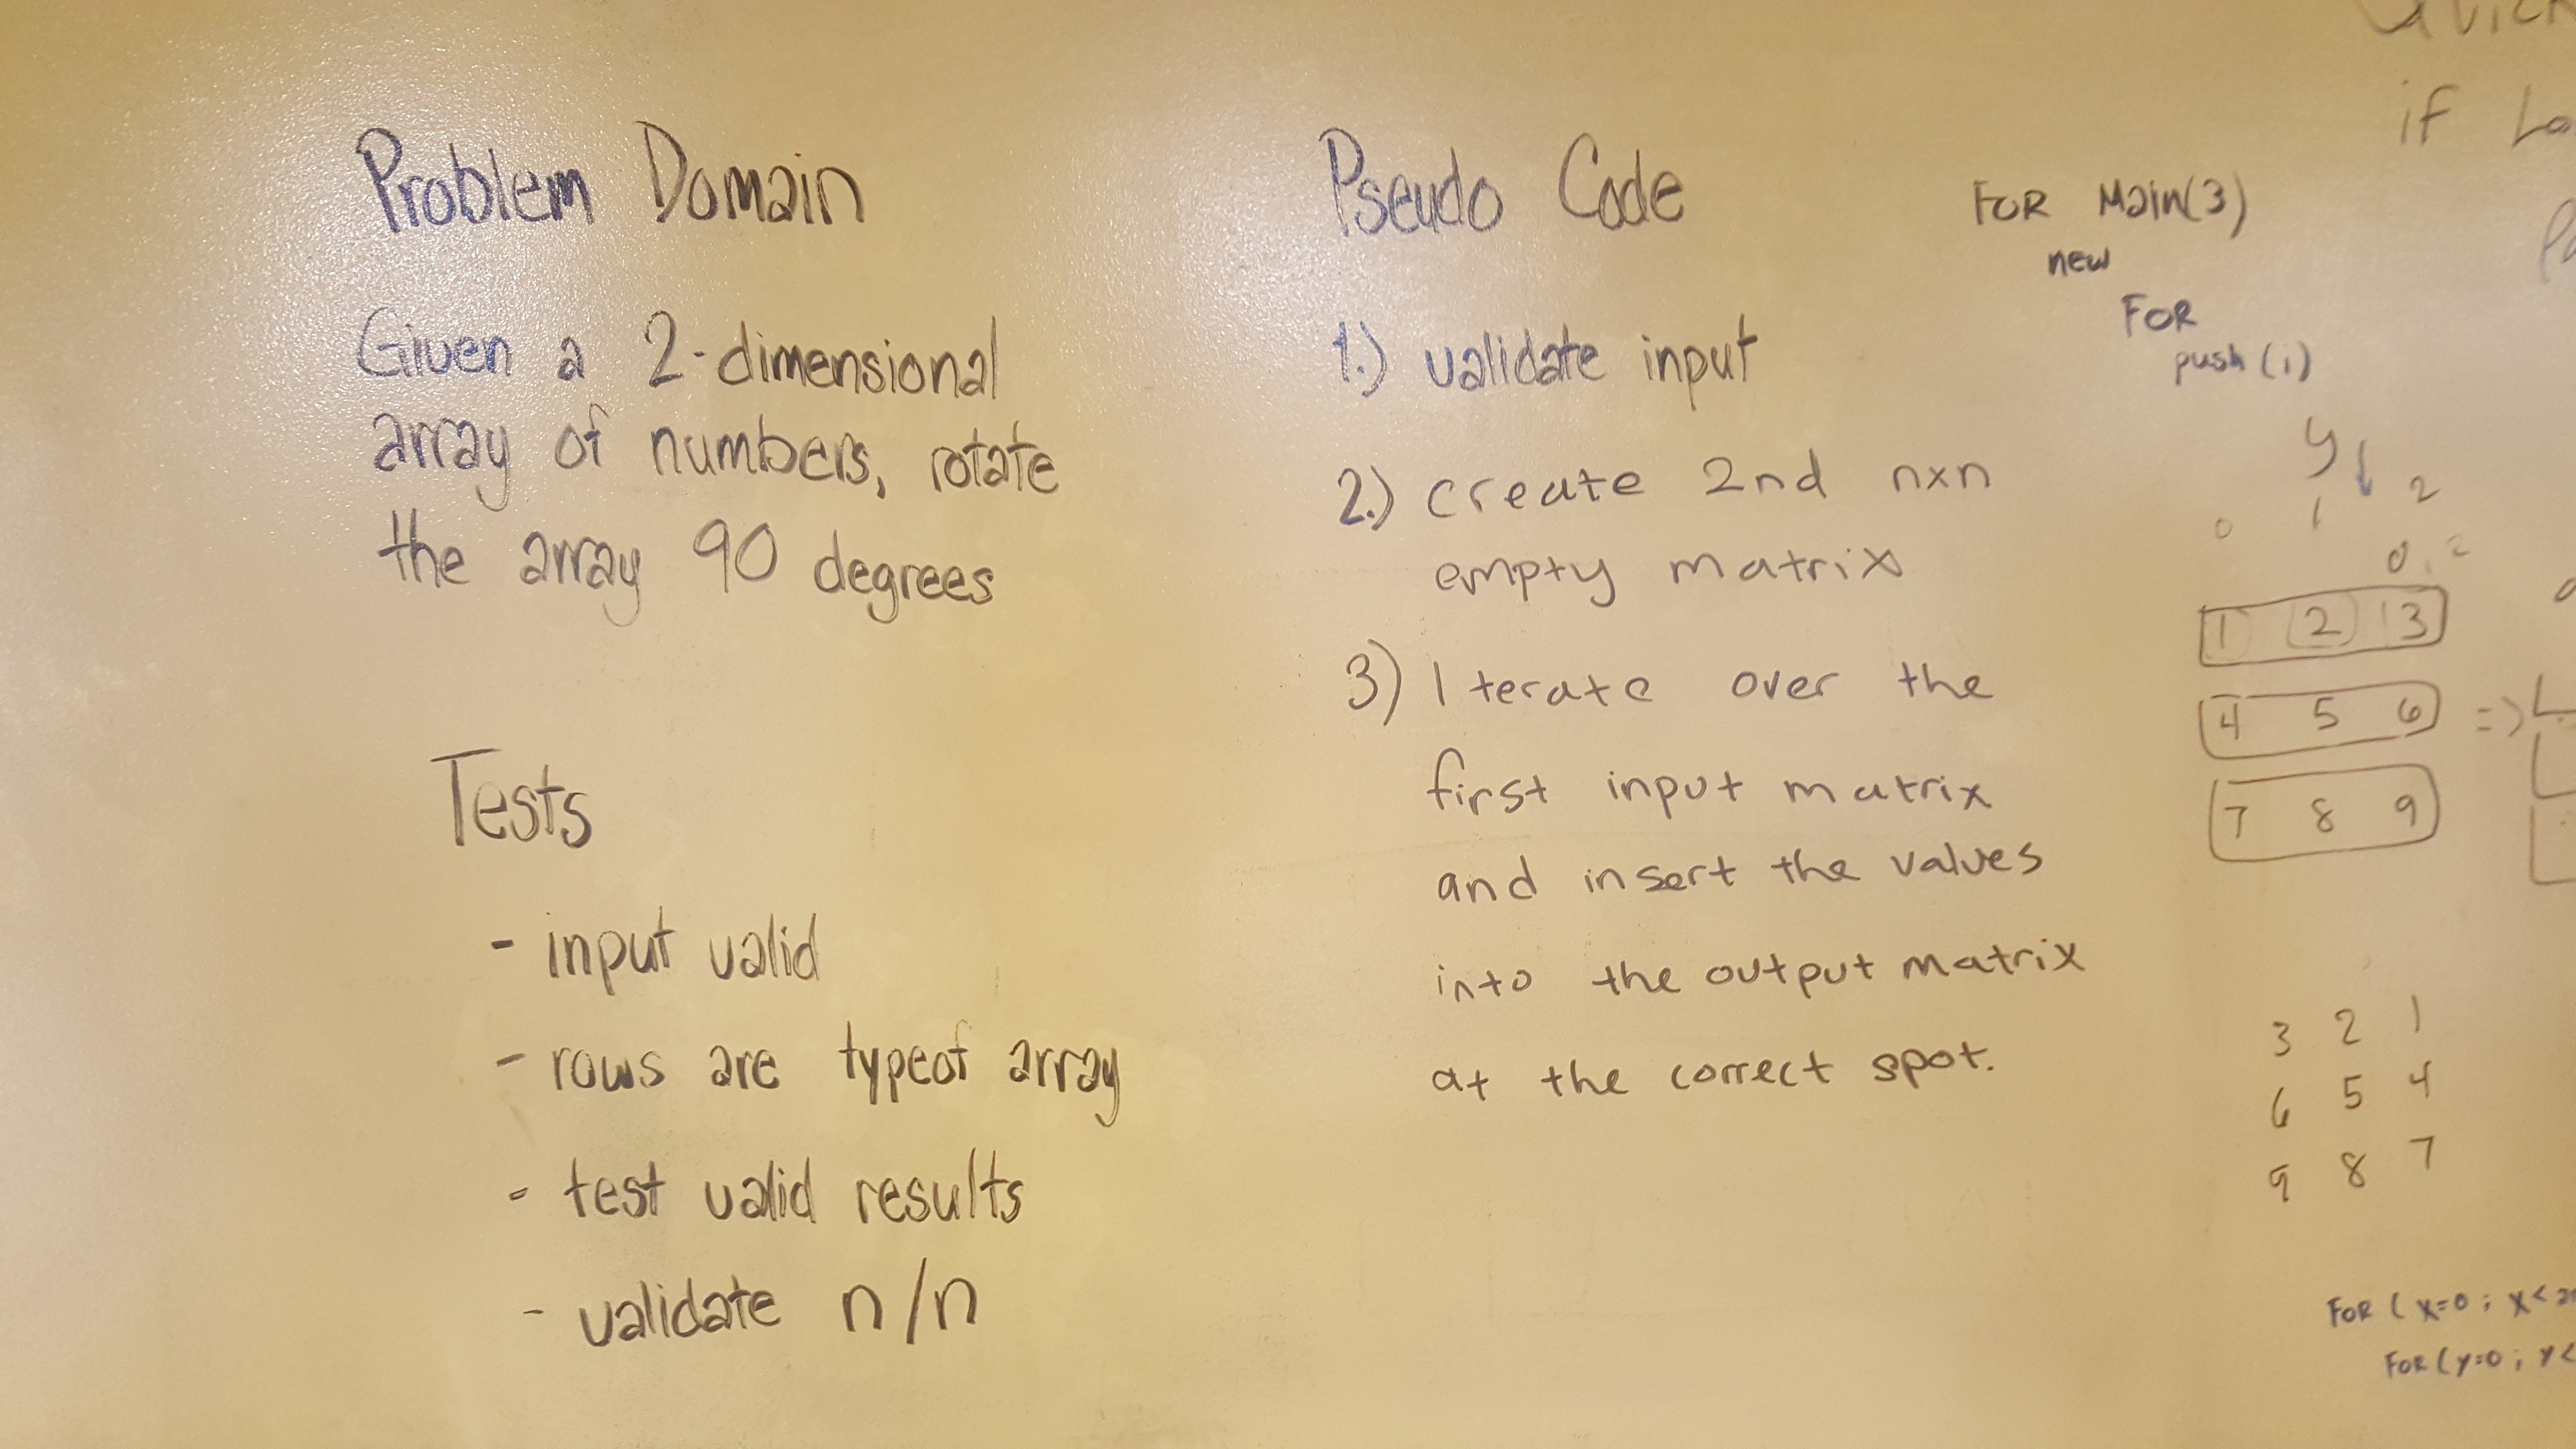 Problem Domain
Given a 2-dimensional
array of numbers, rotate
the array 90 degrees
Tests
- input valid
- rows are typeof array
- test valid results
- validate n/n
Pseudo Code
1.) validate input
2.) create 2nd nxn
empty matrix
3) Iterate over the
first input matrix
and insert the values
into the output matrix
at the correct spot.
if
FOR Main(3)
new
FOR
push(i)
y ↓
0 1 2
0,2
1 2 3
4 5 6 =>
7 8 9
3 2 1
6 5 4
9 8 7
FOR ( x=0 ; x<
FOR (y=0 ; y<